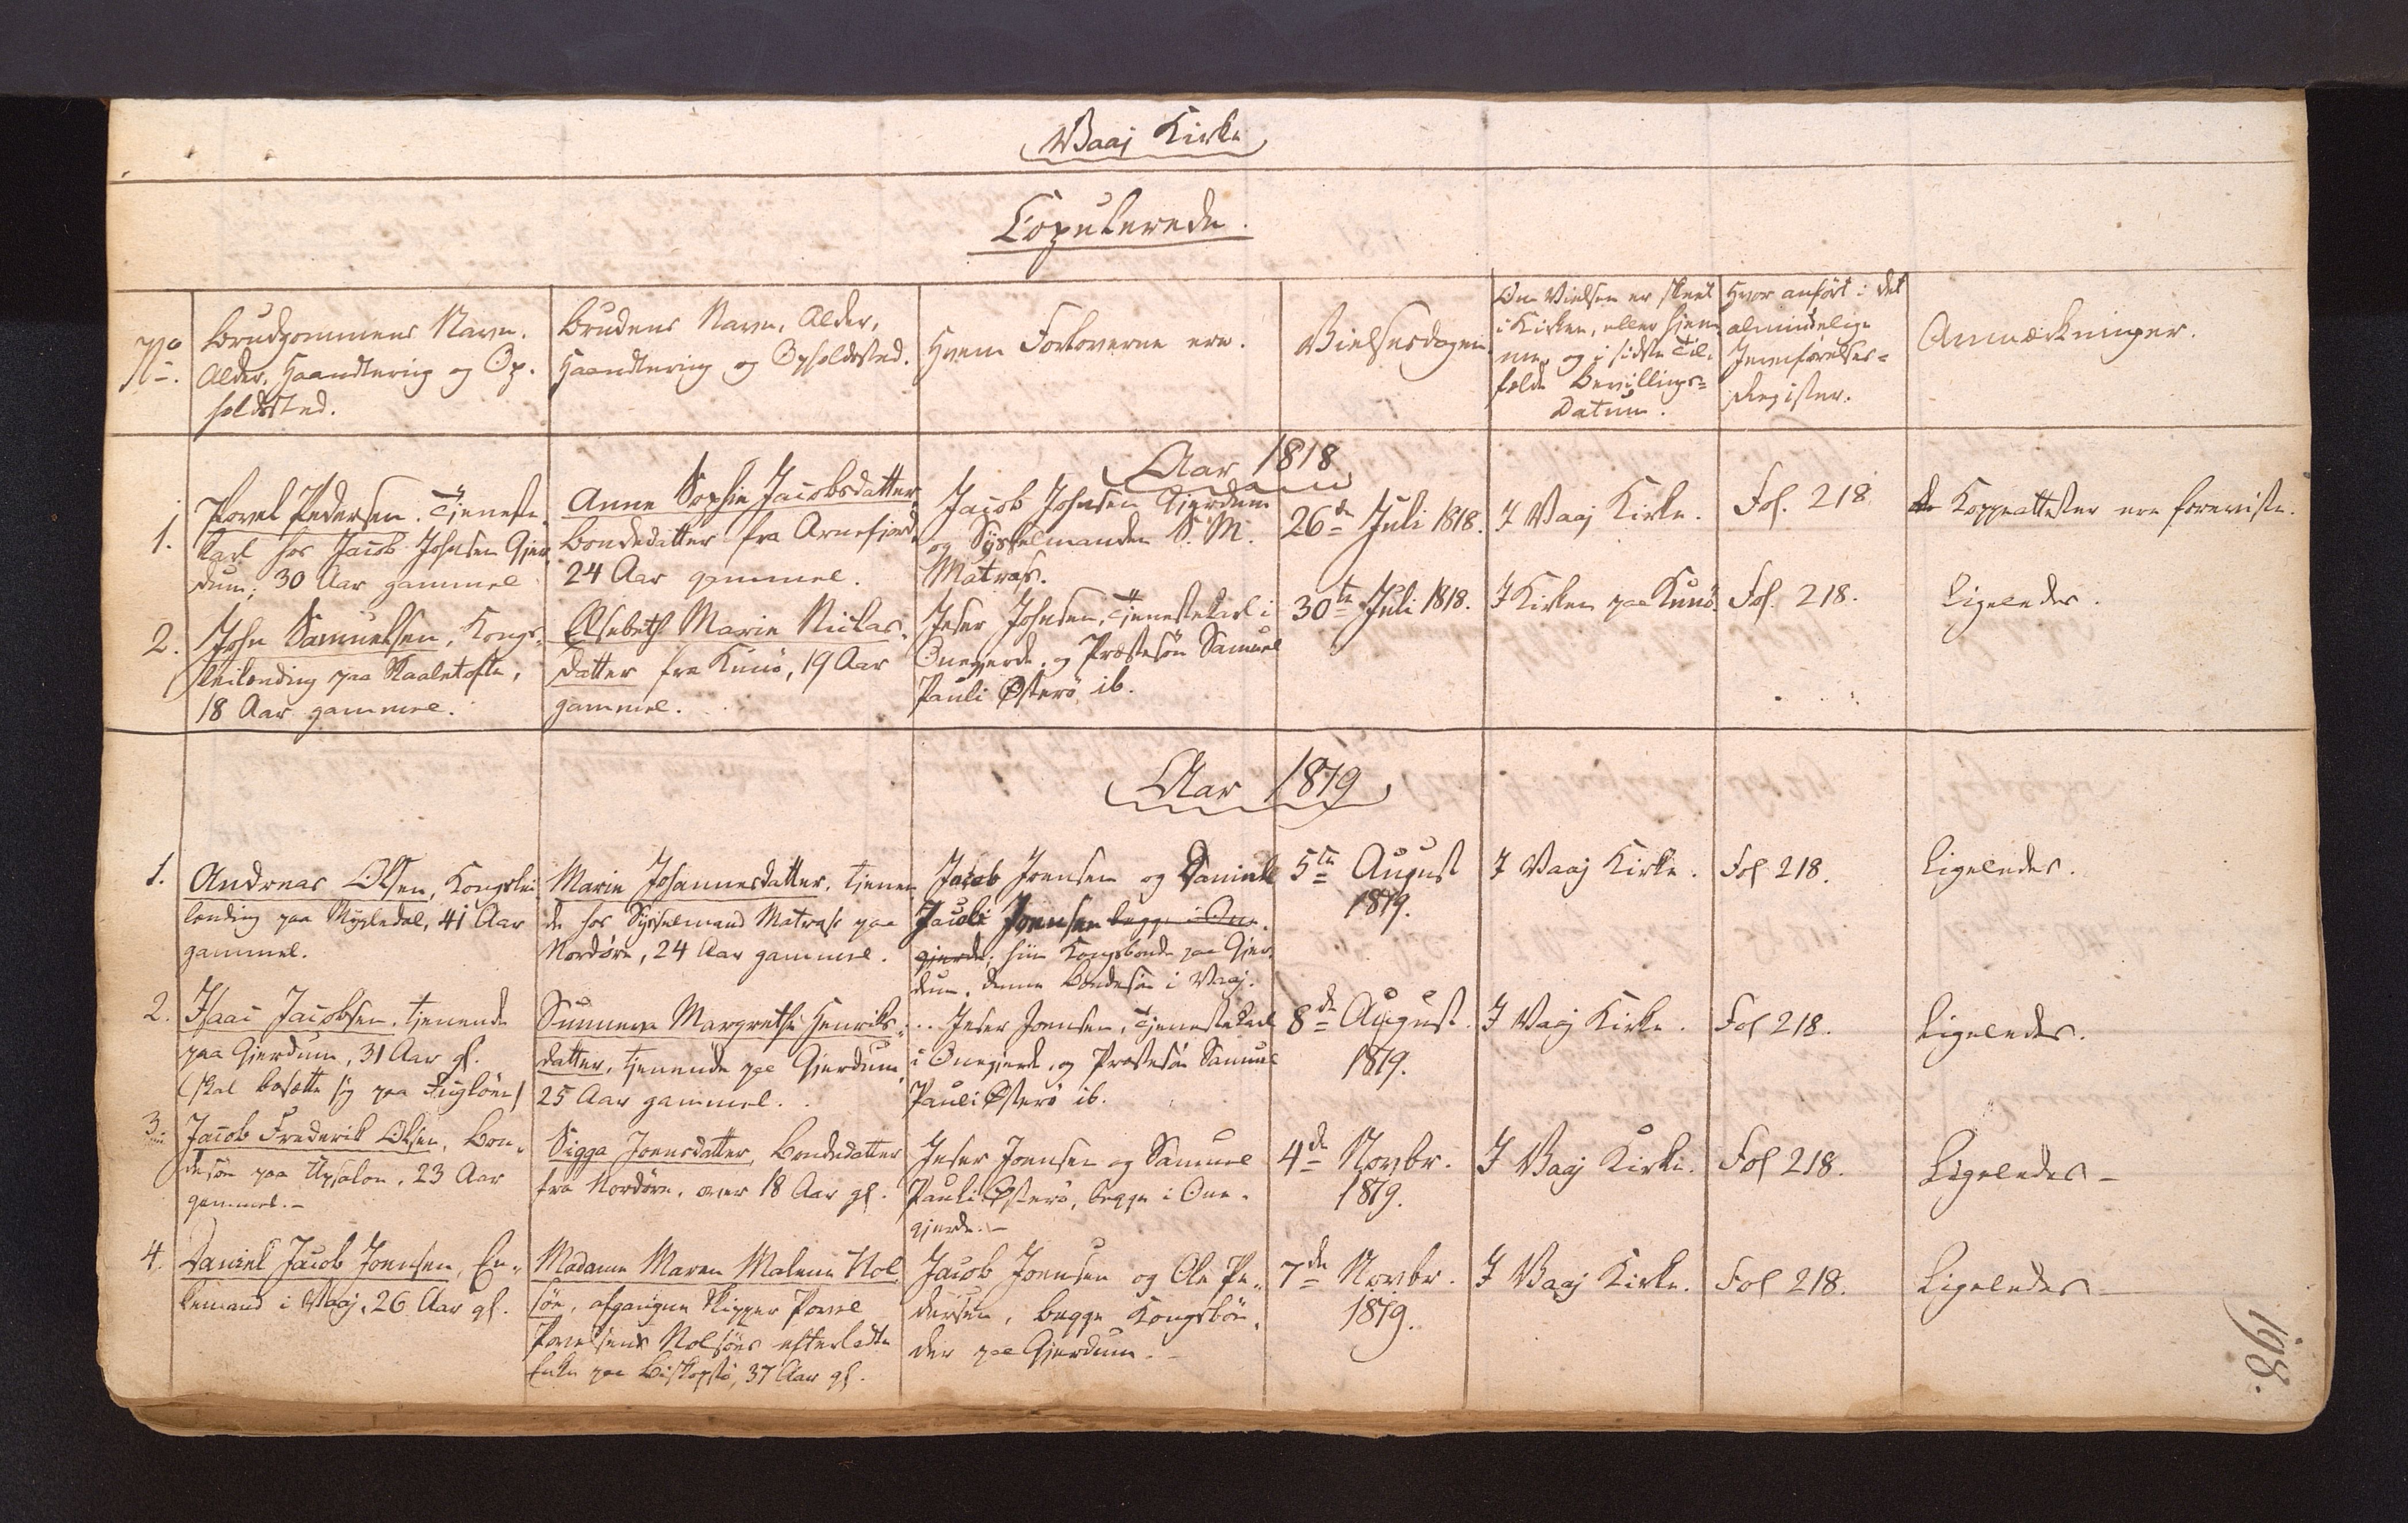 Vaaj Kirke
Copulerede.
No.
Brudgommens Navn.
Alder, Haandtering og Op-
holdssted.
Brudens Navn, Alder,
Haandtering og Opholdssted.
Hvem Forloverne ere.
Vielsesdagen
Om Vielsen er skeet
i Kirken, eller hjem-
me, og i sidste Til-
fælde Bevillings-
Datum.
Hvor anført i det
almindelige
Jevnførelses-
Register.
Anmærkninger.
Aar 1818
1.
Povel Pedersen. Tjeneste-
karl hos Jacob Johnsen Gjer-
dum, 30 Aar gammel
Anne Sophie Jacobsdatter
Bondedatter fra Arnefjord
24 Aar gammel.
Jacob Johnsen Gjerdum
og Sysselmanden S. M.
Matras.
26de Juli 1818.
I Vaaj Kirke.
Fol. 218
Koppeattester ere foreviste.
2.
John Samuelsen, Kongs-
leilending paa Skaaletofte,
18 Aar gammel.
Elsebeth Marie Niclas-
datter fra Kunø, 19 Aar
gammel.
Jeser Johnsen, Tjenestekarl i
Onegjerde, og Præstesøn Samuel
Pauli Østerø ib.
30te Juli 1818.
I Kirken paa Kunø
Fol. 218.
Ligeledes.
Aar 1819
1.
Andreas Olsen, Kongslei-
lending paa Mygledal, 41 Aar
gammel.
Marie Johannesdatter, tjenen-
de hos Sysselmand Matras paa
Nordøre, 24 Aar gammel.
Jacob Joensen og Daniel
Jacob Joensen begge i One-
gjerde. hiin Kongsbonde paa Gjer-
dum, denne Bondesøn i Vaaj.
5te August
1819.
I Vaaj Kirke.
Fol 218.
Ligeledes.
2.
Isaac Jacobsen, tjenende
paa Gjerdum, 31 Aar gl.
(skal bosætte sig paa Fugløen)
Sunneva Margrethe Henriks-
datter, tjenende paa Gjerdum,
25 Aar gammel.
Jeser Joensen, Tjenestekarl
i Onegjerde, og Præstesøn Samuel
Pauli Østerø ib.
8de August.
1819.
I Vaaj Kirke.
Fol 218.
Ligeledes.
3.
Jacob Frederik Olsen, Bon-
desøn paa Upsalon, 23 Aar
gammel.-
Sigga Joensdatter, Bondedatter
fra Nordøre, over 18 Aar gl.
Jeser Joensen og Samuel
Pauli Østerø, begge i One-
gjerde.-
4de Novbr.
1819.
I Vaaj Kirke.
Fol 218.
Ligeledes-
4.
Daniel Jacob Joensen, En-
kemand i Vaaj, 26 Aar gl.
Madame Maren Malene Nol-
søe, afgangne Skipper Povel
Povelsens Nolsøes efterladte
Enke paa Biskopstø, 37 Aar gl.
Jacob Joensen og Ole Pe-
dersen, begge Kongsbøn-
der paa Gjerdum.-
7de Novbr.
1819.
I Vaaj Kirke.
Fol 218.
Ligeledes-
198.